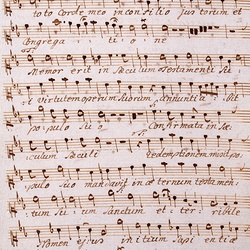 toto Corde meo in consilio justorum et
Congrega_ti_o ne
Memor erit in Sæculum Testamenti Su
i virtutem operum Suorum annuntia bit
po_pulo Su o Confirmata in Sæ_
culum Sæculi redemptionem misit po_
pulo suo mandavit in æternum testamen_
tum Su um Sanctum et ter_ribile
Nomen ejus initium sapientiæ